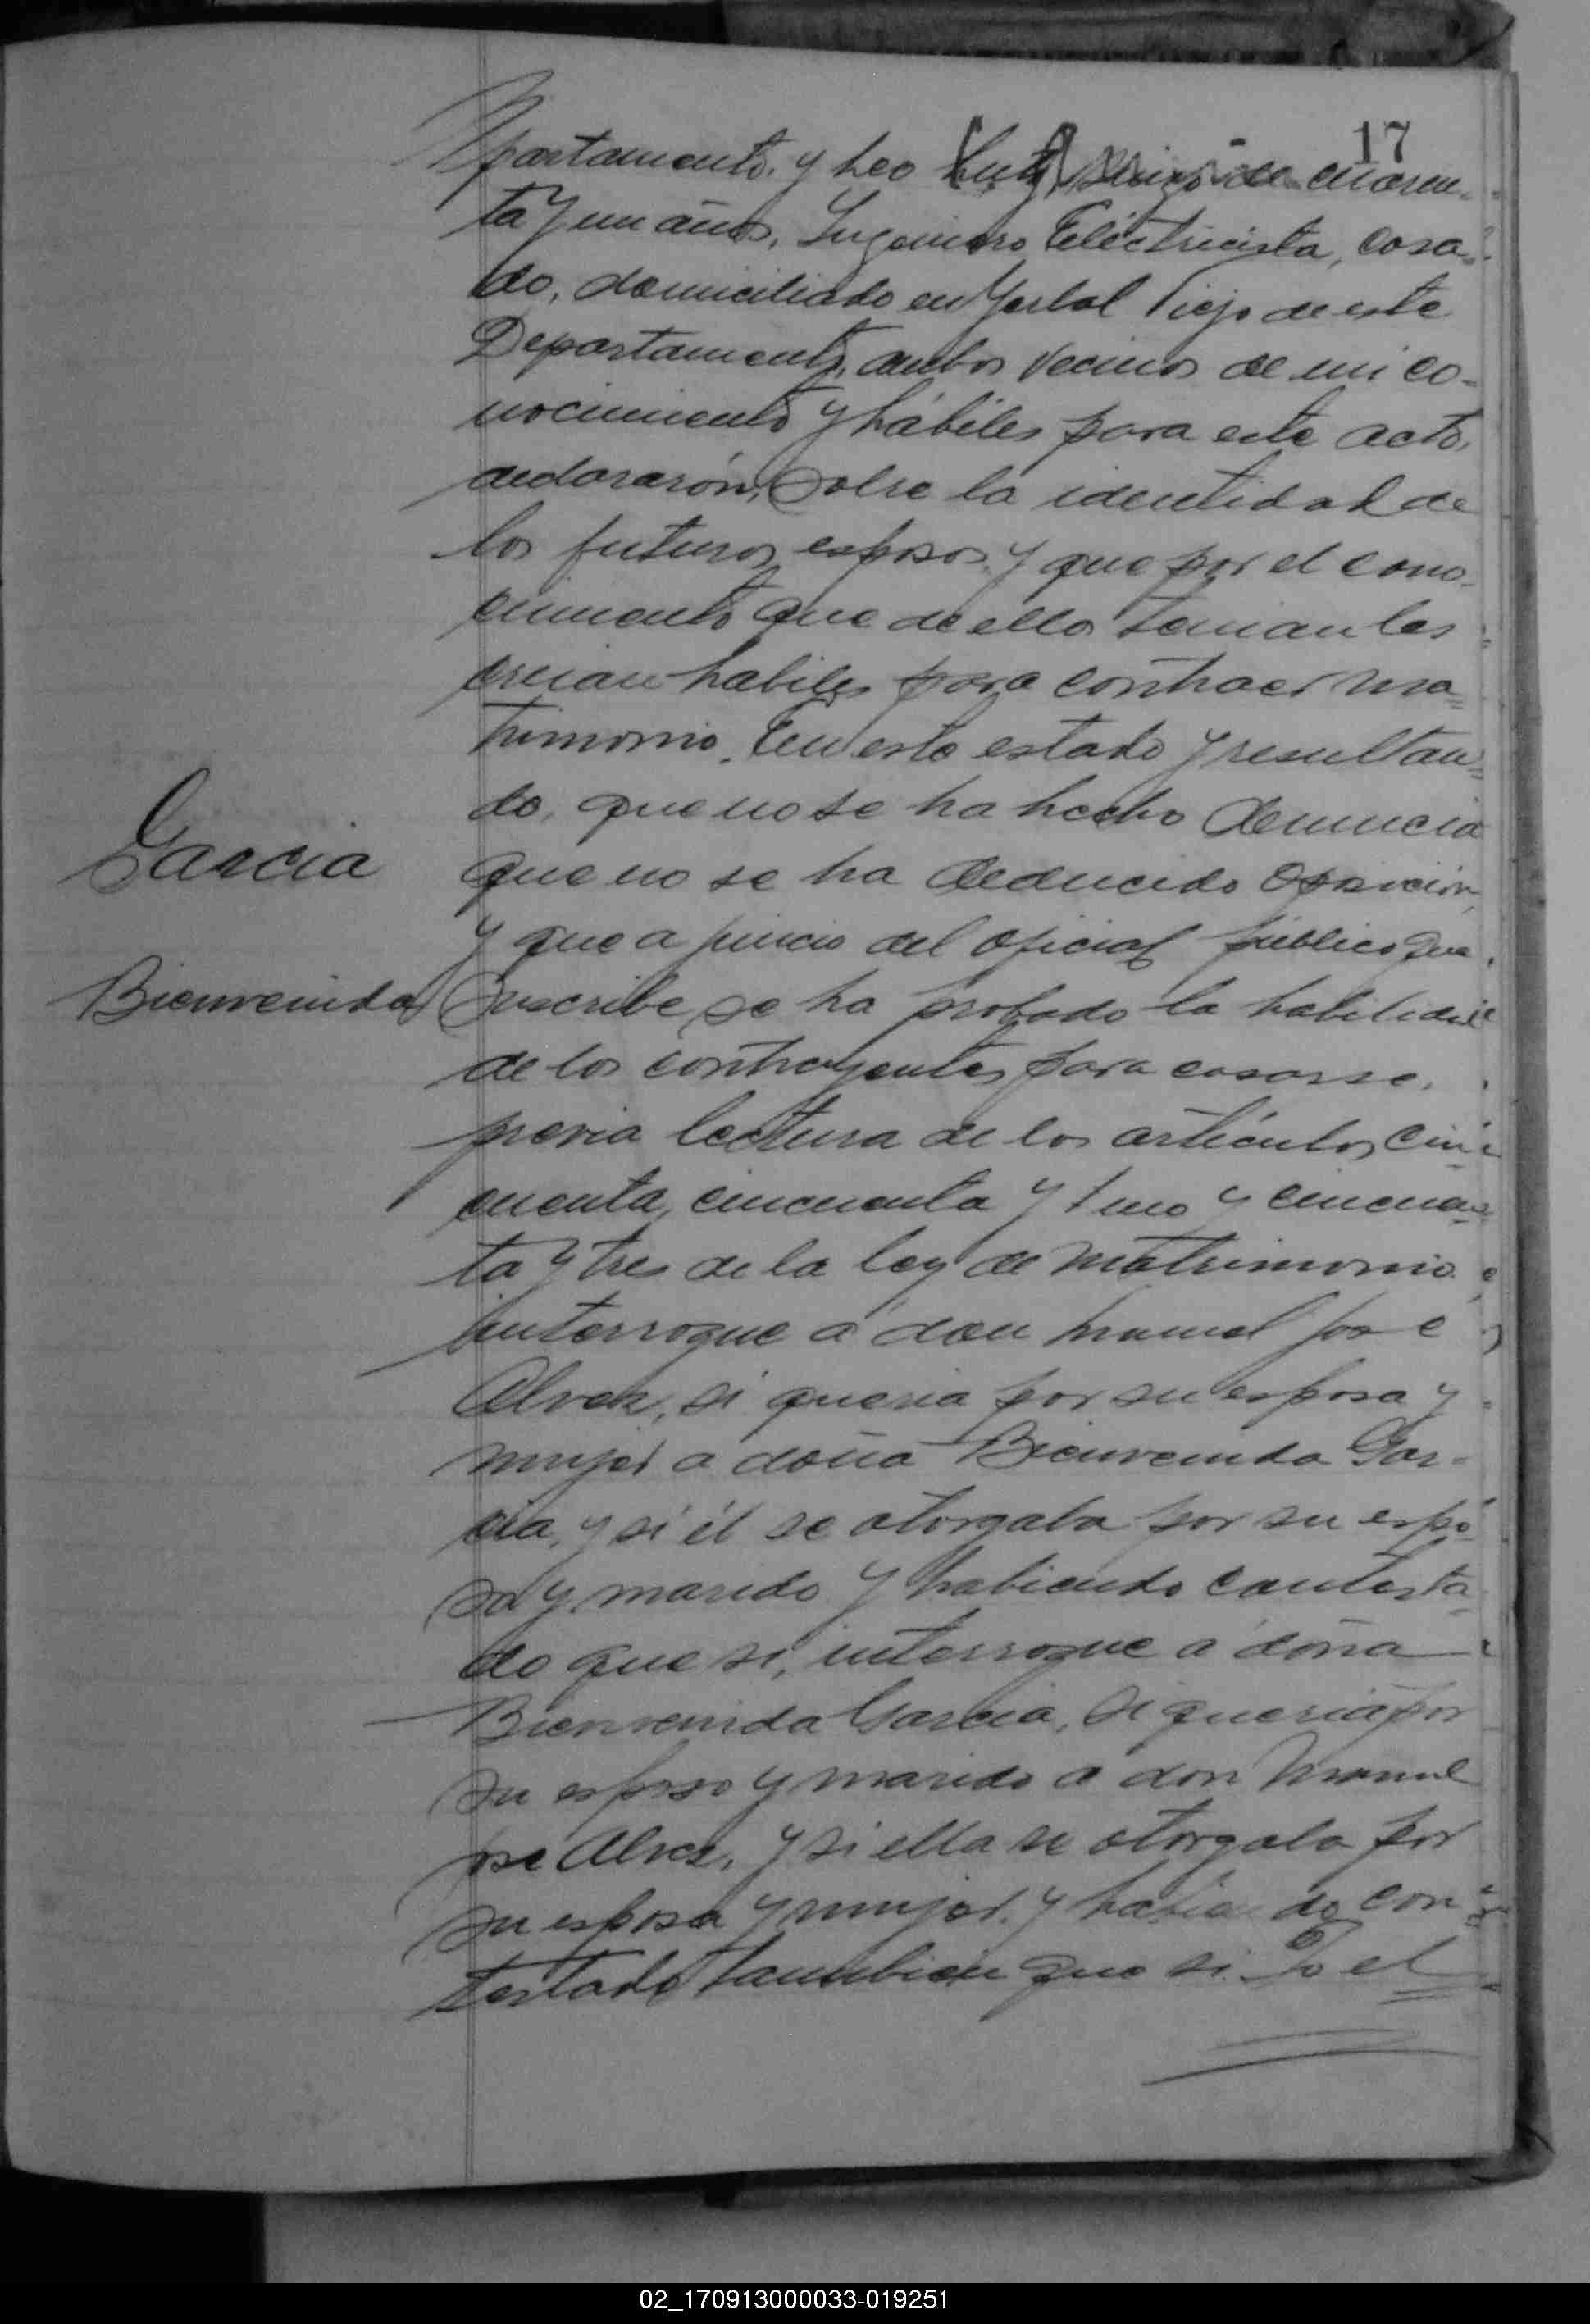 17
partamento. y Leo de cuaren-
ta y un años, Ingeniero Eléctricista, casa-
do, domiciliado en Yerbal Viejo de este
Departamento, ambos vecinos de mi co-
nocimiento y hábiles para este acto,
declararón, sobre la identidad de
los futuros esposos, y que por el cono-
cimiento que de ellos tenian los
creian habiles para contraer ma-
trimonio. En este estado y resultan-
do, que no se ha hecho denuncia
Garcia
que no se ha deducido oposicion,
y que a juicio del oficial público que
Bienvenida
suscribe se ha probado la habilidad
de los contrayentes para casarse.
previa lectura de los artículos cin-
cuenta, cincuenta y uno y cincuen-
ta y tres de la ley de matrimonio
interrogue a don Manuel José
Alvez, si queria por su esposa y
mujer a doña Bienvenida Gar-
cia, y si él se otorgaba por su espo-
so y marido y habiendo contesta-
do que si, interrogue a doña
Bienvenida Garcia, si queria por
su esposo y marido a don Manuel
José Alvez, y si ella se otorgaba por
su esposa y mujer. y habiendo con-
testado tambien que si. Yo el
02_170913000033-019251